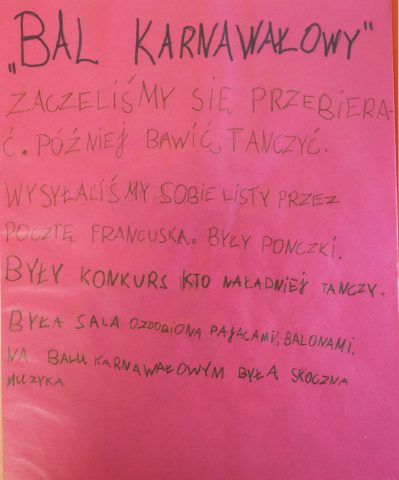 „BAL KARNAWAŁOWY"
ZACZELIŚMY SIĘ PRZEBIERA-
Ć. PÓŹNIEJ BAWIĆ, TANCZYĆ.
WYSYŁALIŚMY SOBIE LISTY PRZEZ
POCZTĘ FRANCUSKA. BYŁY PONCZKI.
BYŁY KONKURS KTO NAŁADNIEJ TANCZY.
BYŁA SALA OZDOBIONA PAJACAMI, BALONAMI.
NA BALU KARNAWAŁOWYM BYŁA SKOCZNA
MUZYKA